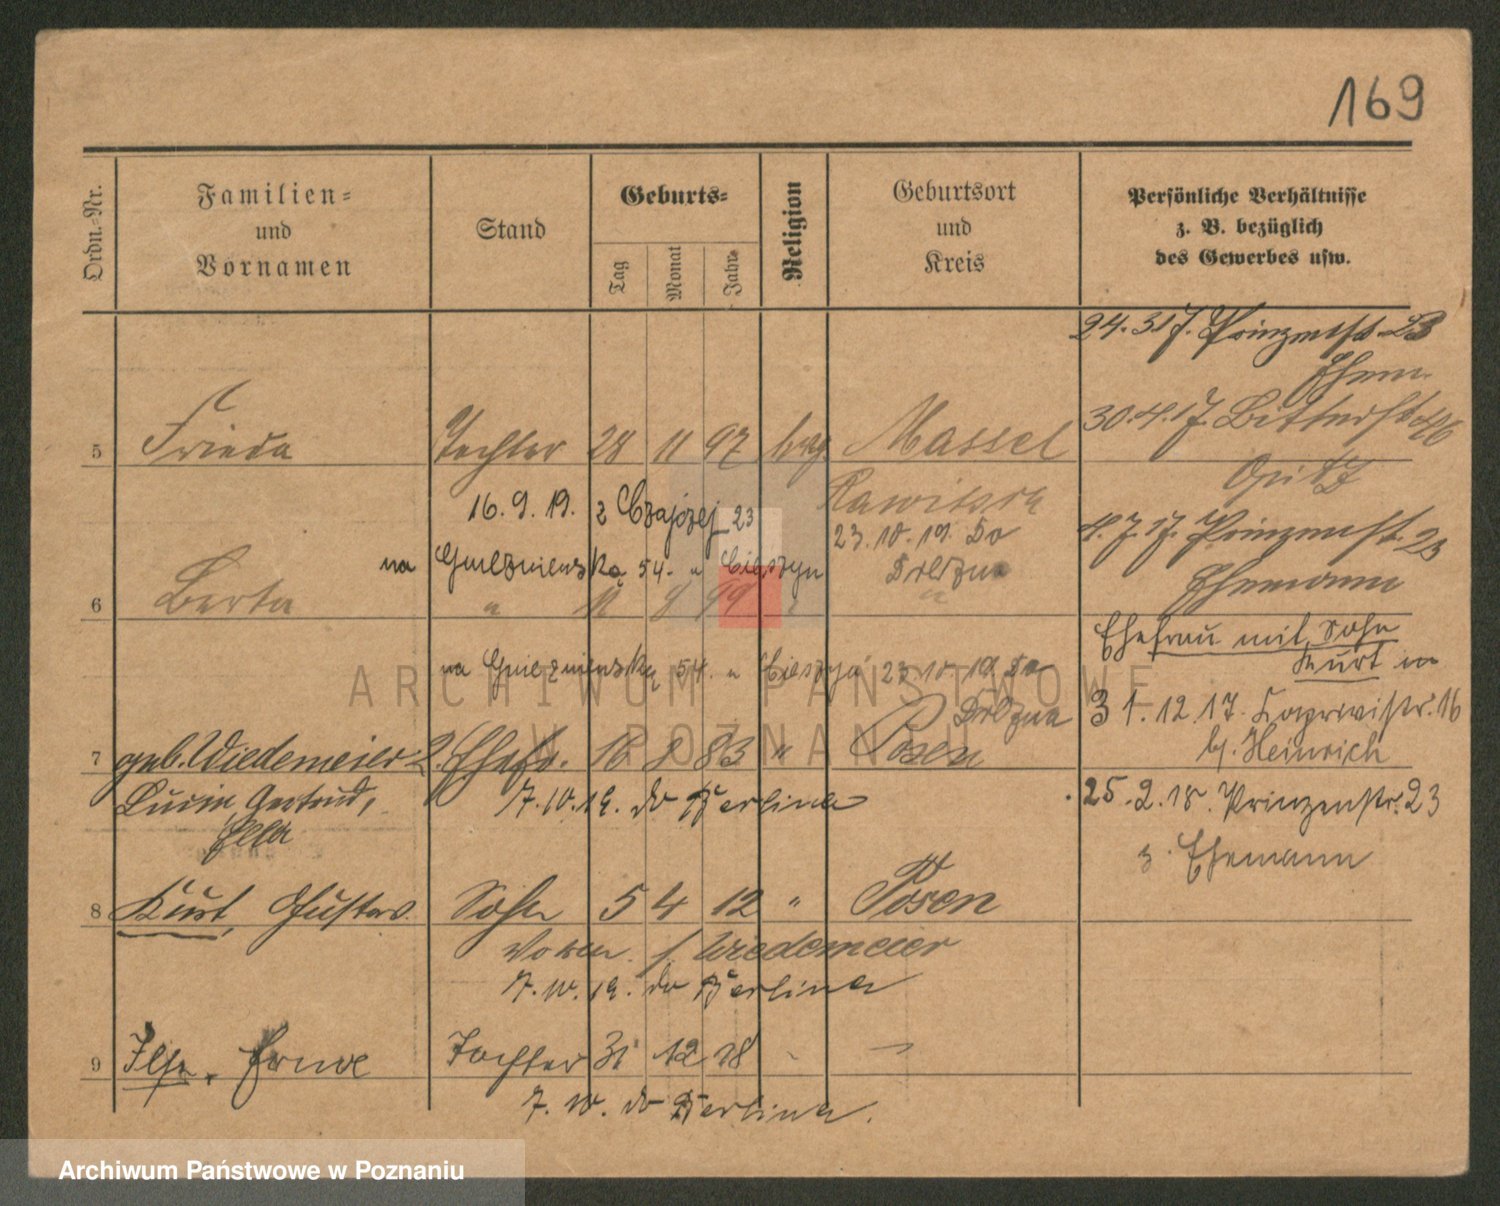 169
Ordn.-Nr.
Familien-
und
Vornamen
Stand
Geburts-
Tag
Monat
Jahr
Religion
Geburtsort
und
Kreis
Persönliche Verhältnisse
z. B. bezüglich
des Gewerbes usw.
24.3.17. Prinzenst. 23
Ehem.
5 Frieda Tochter 28 11 97 Massel
Rawitsch
30.4.17.
Opitz
16.9.19. z 23
23.10.19. Do
Drezna
na Gnieznienska 54. Cieszyn
4.7.17. Prinzenst. 23
Ehemann
6 Berta " 11 9 99 " "
Ehefrau mit Sohn
Kurt in
na Gnieznienska 54. 23 10 19 Do
Drezna
31.12.17. 16
b/. Heinrich
7 geb. Wiedemeier 2. Ehefr. 18 8 83 " Posen
Gertrud,
Ella
7.10.19. do Berlina
25.2.18. Prinzenstr. 23
z. Ehemann
8 Kurt, Gustav. Sohn 5 4 12 " Posen
Wiedemeier
7.10.19. do Berlina
9 Ilse, Tochter 31 12 18 - —
7.10. do Berlina.
ARCHIWUM PAŃSTWOWE
W POZNANIU
Archiwum Państwowe w Poznaniu